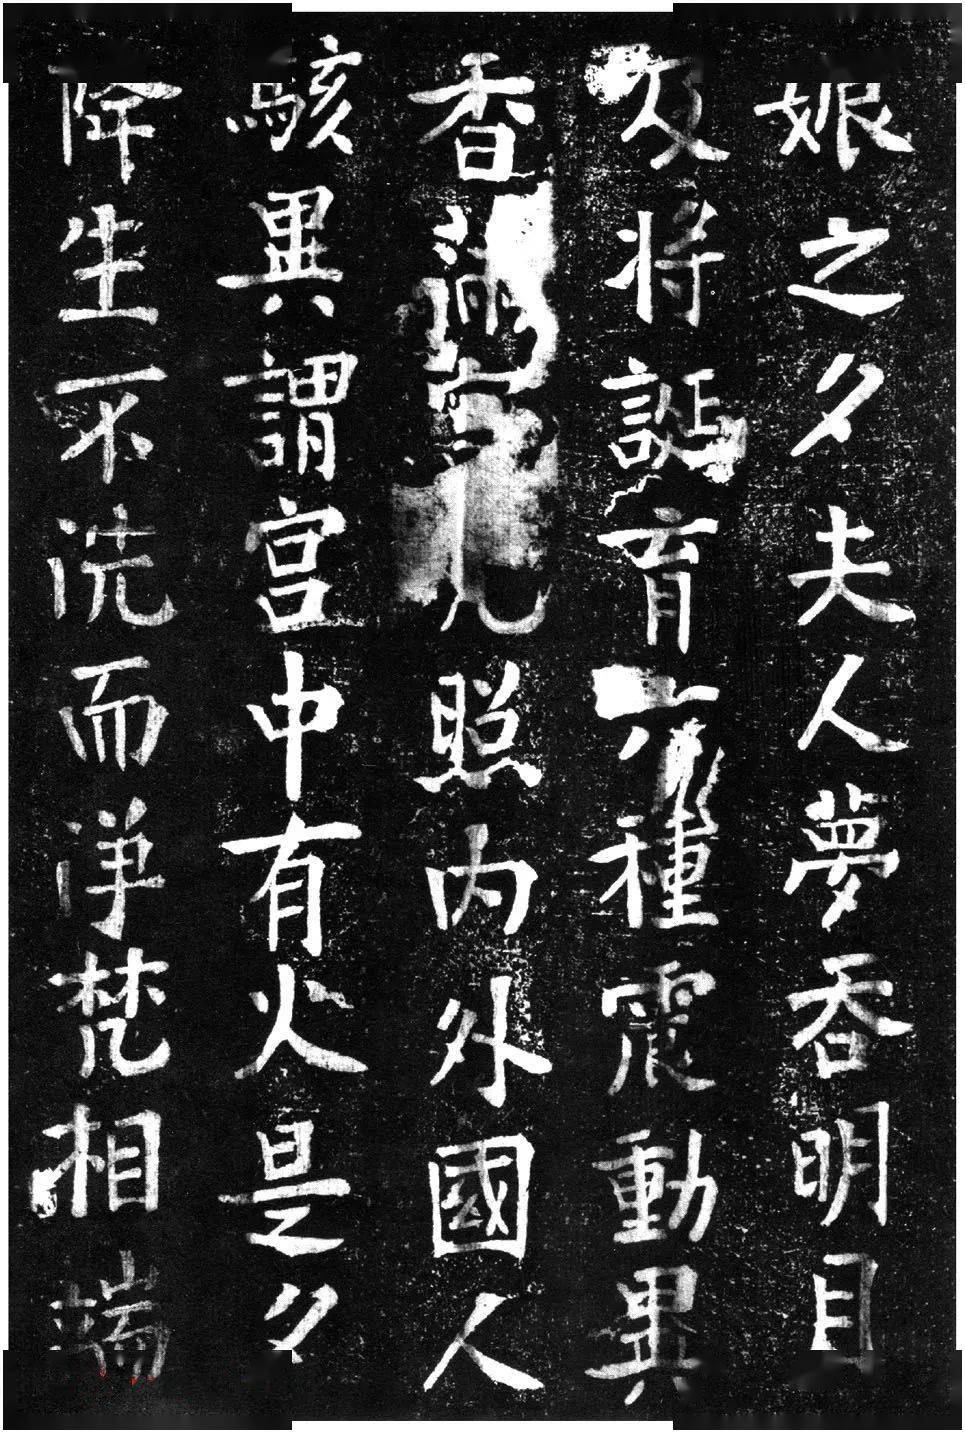 娠之夕夫人夢吞明月
及將誕育六種震動異
香滿室光照内外國人
駭異謂宮中有火是夕
降生不洗而淨梵相端